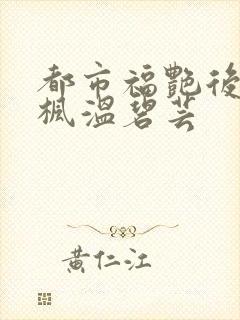 都市福艷後
楓溫碧芸
黃仁江